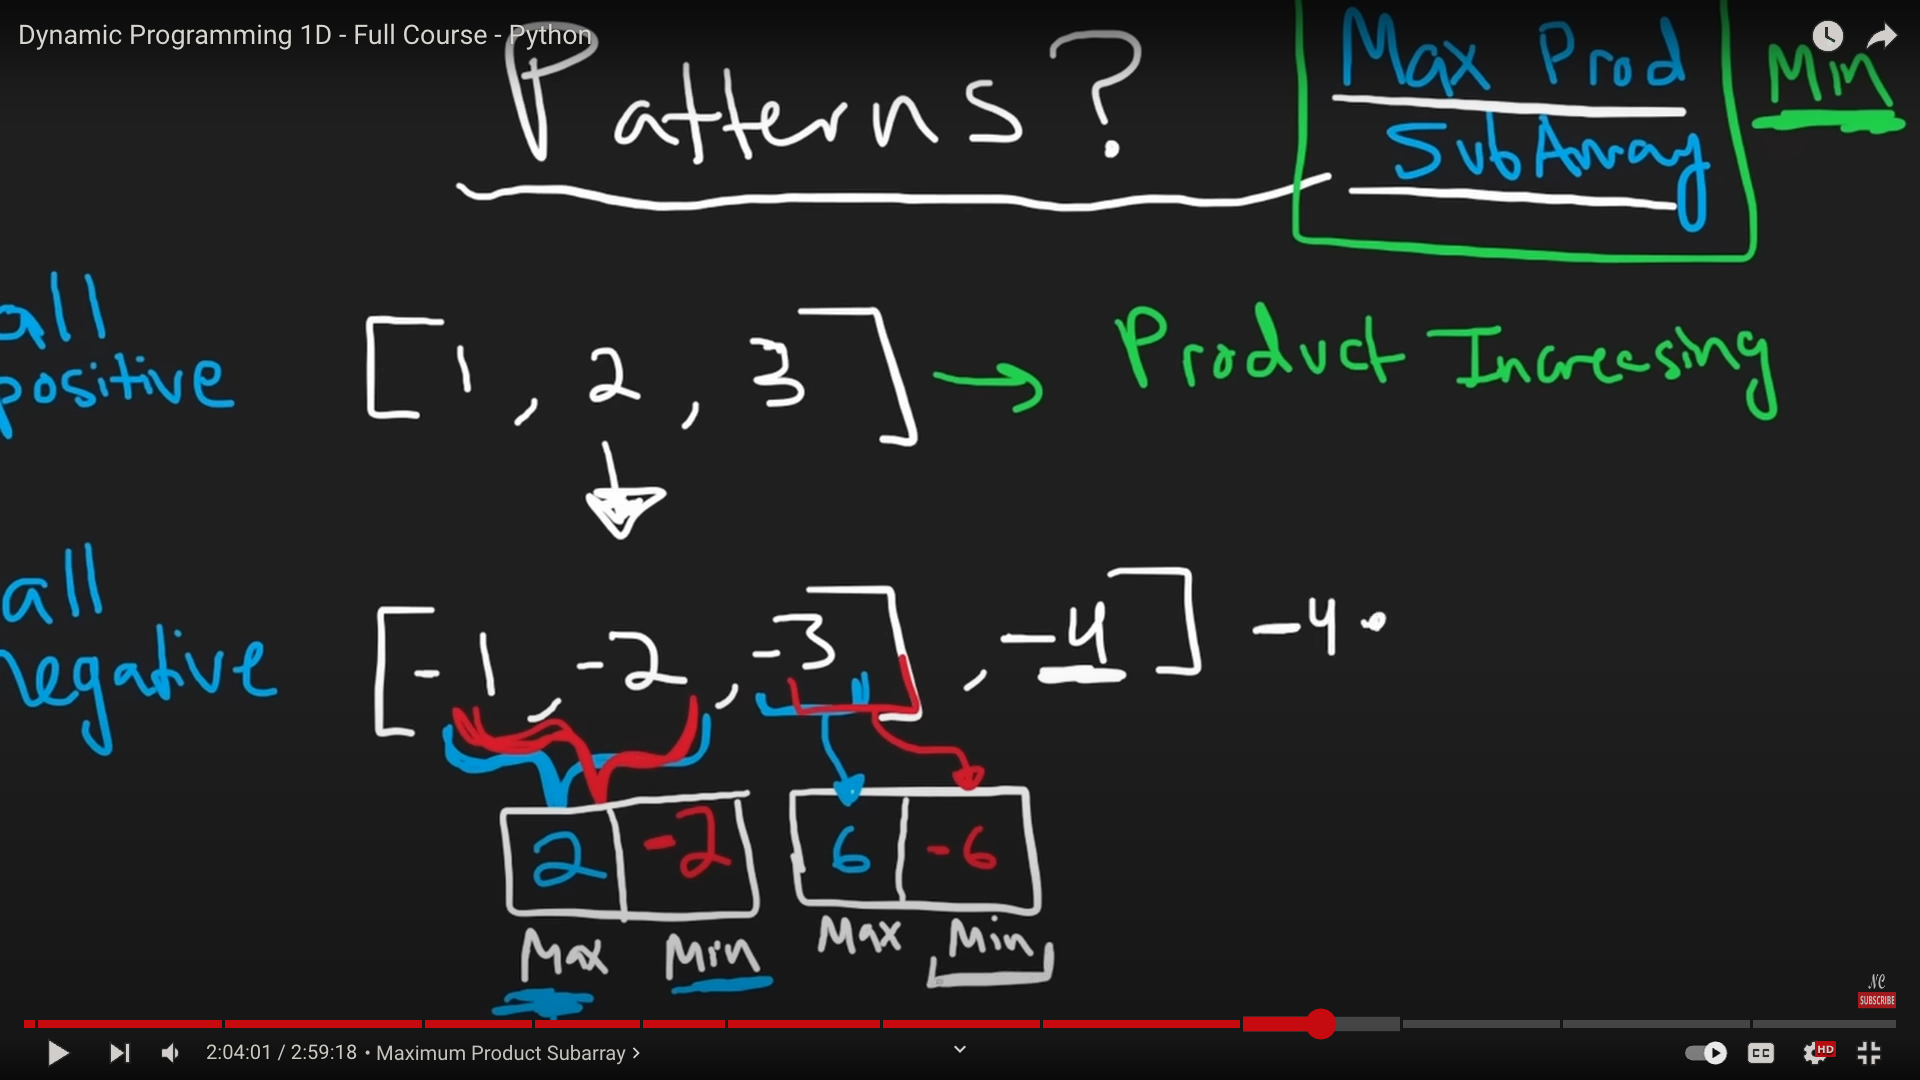 Dynamic Programming 1D - Full Course - Python
Patterns?
Max Prod
SubArray
Min
all
positive
[1, 2, 3] → Product Increasing
all
negative
[-1, -2, -3], -4] -4 •
2 -2 6 -6
Max Min Max Min
NC
SUBSCRIBE
2:04:01 / 2:59:18 • Maximum Product Subarray >
CC
HD